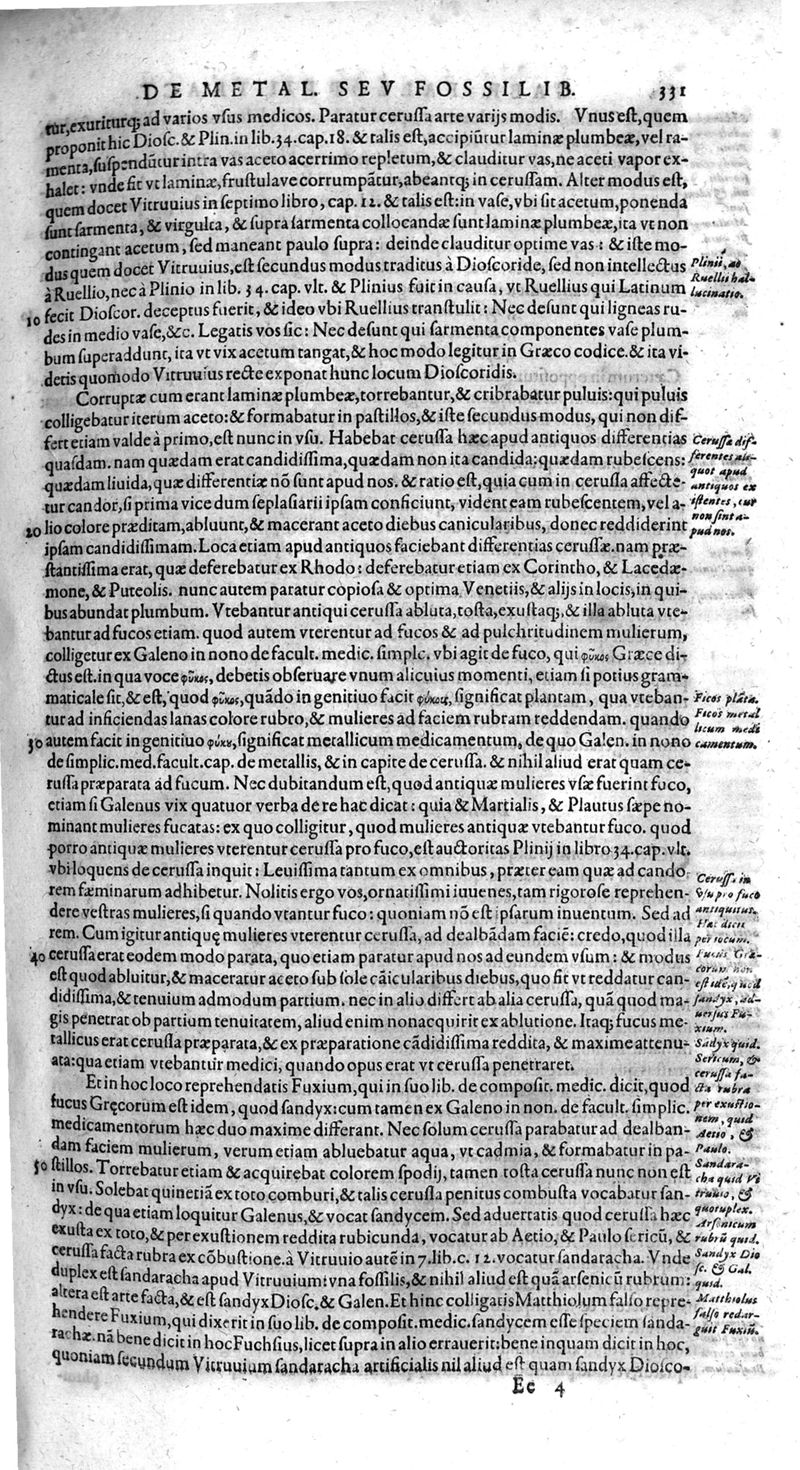 DE METAL. SEV FOSSILIB. 331
tur, exuriturq; ad varios vsus medicos. Paratur cerussa arte varijs modis. Vnus est, quem
proponit hic Diosc. & Plin. in lib. 34. cap. 18. & talis est, accipiũtur laminæ plumbeæ, vel ra-
menta, suspendãtur intra vas aceto acerrimo repletum, & clauditur vas, ne aceti vapor ex-
halet: vnde fit vt laminæ, frustulave corrumpãtur, abeantq; in cerussam. Alter modus est,
quem docet Vitruuius in septimo libro, cap. 12. & talis est: in vase, vbi sit acetum, ponenda
sunt sarmenta, & virgulta, & supra sarmenta collocandæ sunt laminæ plumbeæ, ita vt non
contingant acetum, sed maneant paulo supra: deinde clauditur optime vas: & iste mo-
dus quem docet Vitruuius, est secundus modus traditus à Dioscoride, sed non intellectus
à Ruellio, nec à Plinio in lib. 34. cap. vlt. & Plinius fuit in causa, vt Ruellius qui Latinum
10 fecit Dioscor. deceptus fuerit, & ideo vbi Ruellius transtulit: Nec desunt qui ligneas ru-
des in medio vase, &c. Legatis vos sic: Nec desunt qui sarmenta componentes vase plum-
bum superaddunt, ita vt vix acetum tangat, & hoc modo legitur in Græco codice. & ita vi-
detis quomodo Vitruuius recte exponat hunc locum Dioscoridis.
Corruptæ cum erant laminæ plumbeæ, torrebantur, & cribrabatur puluis: qui puluis
colligebatur iterum aceto: & formabatur in pastillos, & iste secundus modus, qui non dif-
fert etiam valde à primo, est nunc in vsu. Habebat cerussa hæc apud antiquos differentias
quasdam. nam quædam erat candidissima, quædam non ita candida: quædam rubescens:
quædam liuida, quæ differentiæ nõ sunt apud nos. & ratio est, quia cum in cerussa affecte-
tur candor, si prima vice dum seplasiarii ipsam conficiunt, vident eam rubescentem, vel a-
20 lio colore præditam, abluunt, & macerant aceto diebus canicularibus, donec reddiderint
ipsam candidissimam. Loca etiam apud antiquos faciebant differentias cerussæ. nam præ-
stantissima erat, quæ deferebatur ex Rhodo: deferebatur etiam ex Corintho, & Lacedæ-
mone, & Puteolis. nunc autem paratur copiosa & optima Venetiis, & alijs in locis, in qui-
bus abundat plumbum. Vtebantur antiqui cerussa abluta, tosta, exustaq;, & illa abluta vte-
bantur ad fucos etiam. quod autem vterentur ad fucos & ad pulchritudinem mulierum,
colligetur ex Galeno in nono de facult. medic. simplc. vbi agit de fuco, qui φῦκος Græce di-
ctus est. in qua voce φῦκος, debetis obseruare vnum alicuius momenti, etiam si potius gram-
maticale sit, & est, quod φῦκος, quãdo in genitiuo facit φύκους, significat plantam, qua vteban-
tur ad inficiendas lanas colore rubro, & mulieres ad faciem rubram reddendam. quando
30 autem facit in genitiuo φύκυ, significat metallicum medicamentum, de quo Galen. in nono
de simplic. med. facult. cap. de metallis, & in capite de cerussa. & nihil aliud erat quam ce-
russa præparata ad fucum. Nec dubitandum est, quod antiquæ mulieres vsæ fuerint fuco,
etiam si Galenus vix quatuor verba de re hac dicat: quia & Martialis, & Plautus sæpe no-
minant mulieres fucatas: ex quo colligitur, quod mulieres antiquæ vtebantur fuco. quod
porro antiquæ mulieres vterentur cerussa pro fuco, est auctoritas Plinij in libro 34. cap. vlt.
vbi loquens de cerussa inquit: Leuissima tantum ex omnibus, præter eam quæ ad cando
rem fæminarum adhibetur. Nolitis ergo vos, ornatissimi iuuenes, tam rigorose reprehen-
dere vestras mulieres, si quando vtantur fuco: quoniam nõ est ipsarum inuentum. Sed ad
rem. Cum igitur antiquę mulieres vterentur cerussa, ad dealbãdam faciẽ: credo, quod illa
40 cerussa erat eodem modo parata, quo etiam paratur apud nos ad eundem vsum: & modus
est quod abluitur, & maceratur aceto sub sole cãicularibus diebus, quo fit vt reddatur can-
didissima, & tenuium admodum partium. nec in alio differt ab alia cerussa, quã quod ma-
gis penetrat ob partium tenuitatem, aliud enim non acquirit ex ablutione. Itaq; fucus me-
tallicus erat cerussa præparata, & ex præparatione cãdidissima reddita, & maxime attenu-
ata: qua etiam vtebantur medici, quando opus erat vt cerussa penetraret.
Et in hoc loco reprehendatis Fuxium, qui in suo lib. de composit. medic. dicit, quod
fucus Gręcorum est idem, quod sandyx: cum tamen ex Galeno in non. de facult. simplic.
medicamentorum hæc duo maxime differant. Nec solum cerussa parabatur ad dealban-
dam faciem mulierum, verum etiam abluebatur aqua, vt cadmia, & formabatur in pa-
50 stillos. Torrebatur etiam & acquirebat colorem spodij, tamen tosta cerussa nunc non est
in vsu. Solebat quinetiã ex toto comburi, & talis cerussa penitus combusta vocabatur san-
dyx: de qua etiam loquitur Galenus, & vocat sandycem. Sed aduertatis quod cerussa hæc
exusta ex toto, & per exustionem reddita rubicunda, vocatur ab Aetio, & Paulo sericũ, &
cerussa facta rubra ex cõbustione. à Vitruuio autẽ in 7. lib. c. 12. vocatur sandaracha. Vnde
duplex est sandaracha apud Vitruuium: vna fossilis, & nihil aliud est quã arsenicũ rubrum:
altera est arte facta, & est sandyx Diosc. & Galen. Et hinc colligatis Matthiolum falso repre-
hendere Fuxium, qui dixerit in suo lib. de composit. medic. sandycem esse speciem sanda-
rachæ. nã bene dicit in hoc Fuchsius, licet supra in alio errauerit: bene inquam dicit in hoc,
quoniam secundum Vitruuium sandaracha artificialis nil aliud est quam sandyx Diosco-
Ee 4
Plinii, ac
Ruellii hal-
lucinatio.
Cerussæ dif-
ferentes ali-
quot apud
antiquos ex
istentes, cur
non sint a-
pud nos.
Ficos plãta.
Ficos metal
licum medi
camentum.
Cerussa in
vsu pro fuco
antiquitus.
Hac dicit
per iocum.
Fucus Græ-
corum non
est idẽ, quod
sandyx, ad-
uersus Fu-
xium.
Sãdyx quid.
Sericum, &
cerussa fa-
cta rubra
per exustio-
nem, quid
Aetio, &
Paulo.
Sandara-
cha quid Vi
truuio, &
quotuplex.
Arsenicum
rubrũ quid.
Sandyx Dio
sc. & Gal.
quid.
Matthiolus
falso redar-
guit Fuxiũ.